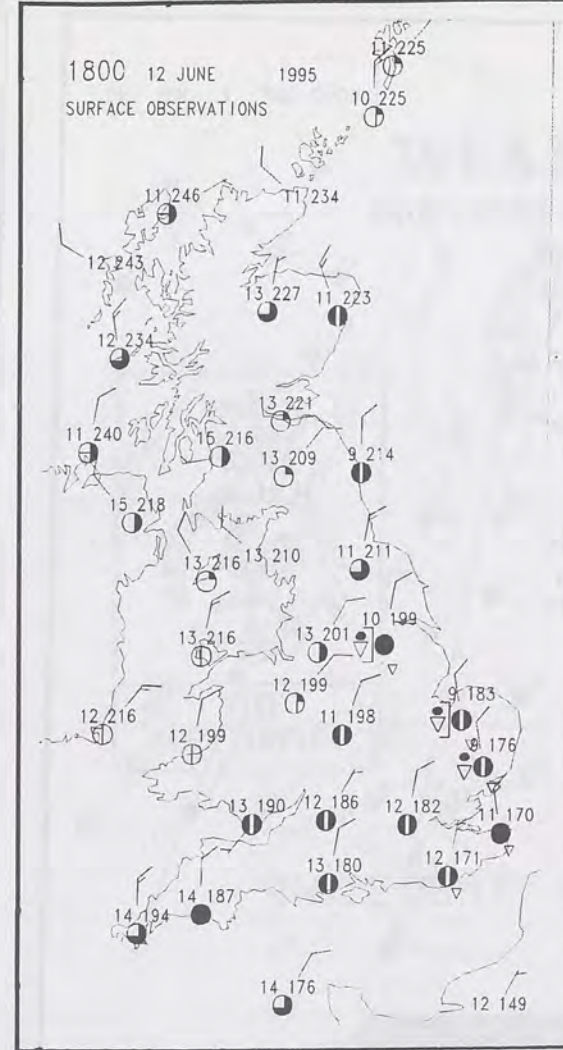 1800 12 JUNE 1995
SURFACE OBSERVATIONS
11 225
10 225
11 246
11 234
12 243
13 227
11 223
12 234
13 221
11 240
15 216
13 209
9 214
15 218
13 210
13 216
11 211
10 199
13 216
13 201
12 199
9 183
12 216
11 198
12 199
9 176
13 190
12 186
12 182
11 170
12 171
13 180
14 187
14 194
14 176
12 149